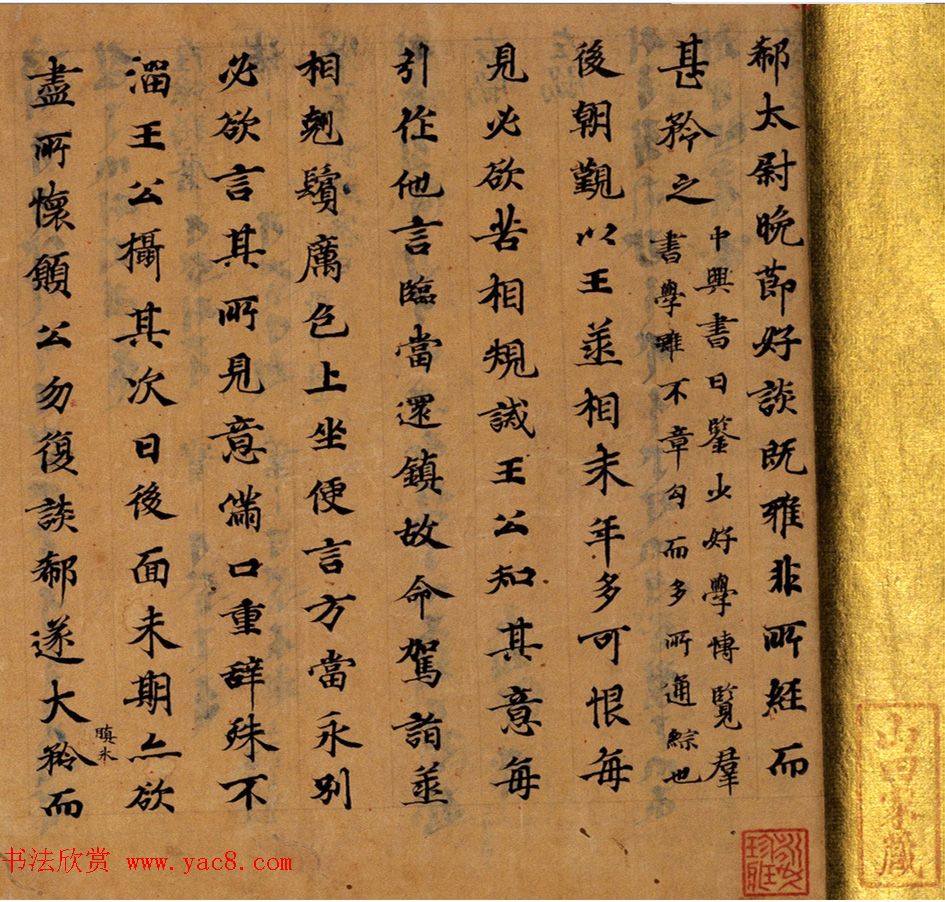 郗太尉晚節好談既雅非所經而
甚矜之
中興書曰鑒少好學博覽羣
書學雖不章勾而多所通綜也
後朝覲以王丞相末年多可恨每
見必欲苦相規誡王公知其意每
引作他言臨當還鎮故命駕詣丞
相剋鬢厲色上坐便言方當永別
必欲言其所見意滿口重辭殊不
溜王公攝其次日後面未期亦欲
盡所懷願公勿復談郗遂大矜而
瞋氷
山田家藏
书法欣赏 www.yac8.com